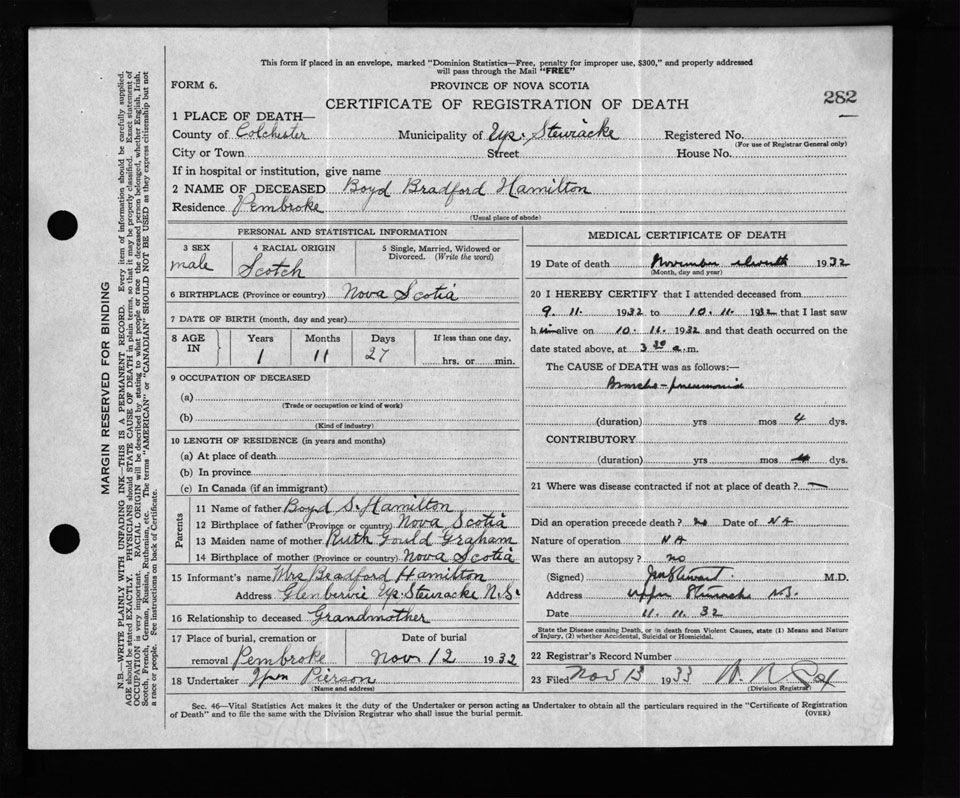 This form if placed in an envelope, marked "Dominion Statistics—Free, penalty for improper use, $300," and properly addressed
will pass through the Mail "FREE"
FORM 6.
PROVINCE OF NOVA SCOTIA
CERTIFICATE OF REGISTRATION OF DEATH
282
1 PLACE OF DEATH—
County of Colchester Municipality of Up. Stewiacke Registered No.
(For use of Registrar General only)
City or Town Street House No.
If in hospital or institution, give name
2 NAME OF DECEASED Boyd Bradford Hamilton
Residence Pembroke
(Usual place of abode)
PERSONAL AND STATISTICAL INFORMATION
3 SEX
male
4 RACIAL ORIGIN
Scotch
5 Single, Married, Widowed or
Divorced. (Write the word)
6 BIRTHPLACE (Province or country) Nova Scotia
7 DATE OF BIRTH (month, day and year)
8 AGE
IN
Years Months Days If less than one day,
1 11 27 hrs. or min.
9 OCCUPATION OF DECEASED
(a)
(Trade or occupation or kind of work)
(b)
(Kind of industry)
10 LENGTH OF RESIDENCE (in years and months)
(a) At place of death
(b) In province
(c) In Canada (if an immigrant)
Parents
11 Name of father Boyd S. Hamilton
12 Birthplace of father (Province or country) Nova Scotia
13 Maiden name of mother Ruth Gould Graham
14 Birthplace of mother (Province or country) Nova Scotia
15 Informant's name Mrs Bradford Hamilton
Address Glenbervie Up. Stewiacke N.S.
16 Relationship to deceased Grandmother
17 Place of burial, cremation or
removal Pembroke
Date of burial
Nov 12 1932
18 Undertaker Pierson
(Name and address)
MEDICAL CERTIFICATE OF DEATH
19 Date of death November eleventh 1932
(Month, day and year)
20 I HEREBY CERTIFY that I attended deceased from
9. 11. 1932 to 10. 11. 1932 that I last saw
him alive on 10. 11. 1932 and that death occurred on
date stated above, at 3 30 a.m.
The CAUSE of DEATH was as follows:—
Broncho-pneumonia
(duration) yrs mos 4 dys.
CONTRIBUTORY
(duration) yrs mos dys.
21 Where was disease contracted if not at place of death? —
Did an operation precede death? no Date of NA
Nature of operation NA
Was there an autopsy? no
(Signed) M.D.
Address Upper Stewiacke N.S.
Date 11. 11. 32
State the Disease causing Death, or in death from Violent Causes, state (1) Means and Nature
of Injury, (2) whether Accidental, Suicidal or Homicidal.
22 Registrar's Record Number
23 Filed Nov 13 1933
(Division Registrar)
Sec. 46—Vital Statistics Act makes it the duty of the Undertaker or person acting as Undertaker to obtain all the particulars required in the "Certificate of Registration
of Death" and to file the same with the Division Registrar who shall issue the burial permit. (OVER)
MARGIN RESERVED FOR BINDING
N.B.—WRITE PLAINLY WITH UNFADING INK—THIS IS A PERMANENT RECORD. Every item of information should be carefully supplied.
AGE should be stated EXACTLY. PHYSICIANS should STATE CAUSE OF DEATH in plain terms, so that it may be properly classified. Exact statement of
OCCUPATION is very important. RACIAL ORIGIN will be described by stating to what people or race the deceased person belonged, whether English, Irish,
Scotch, French, German, Russian, Ruthenian, etc. The terms "AMERICAN" or "CANADIAN" SHOULD NOT BE USED as they express citizenship but not
a race or people. See instructions on back of Certificate.